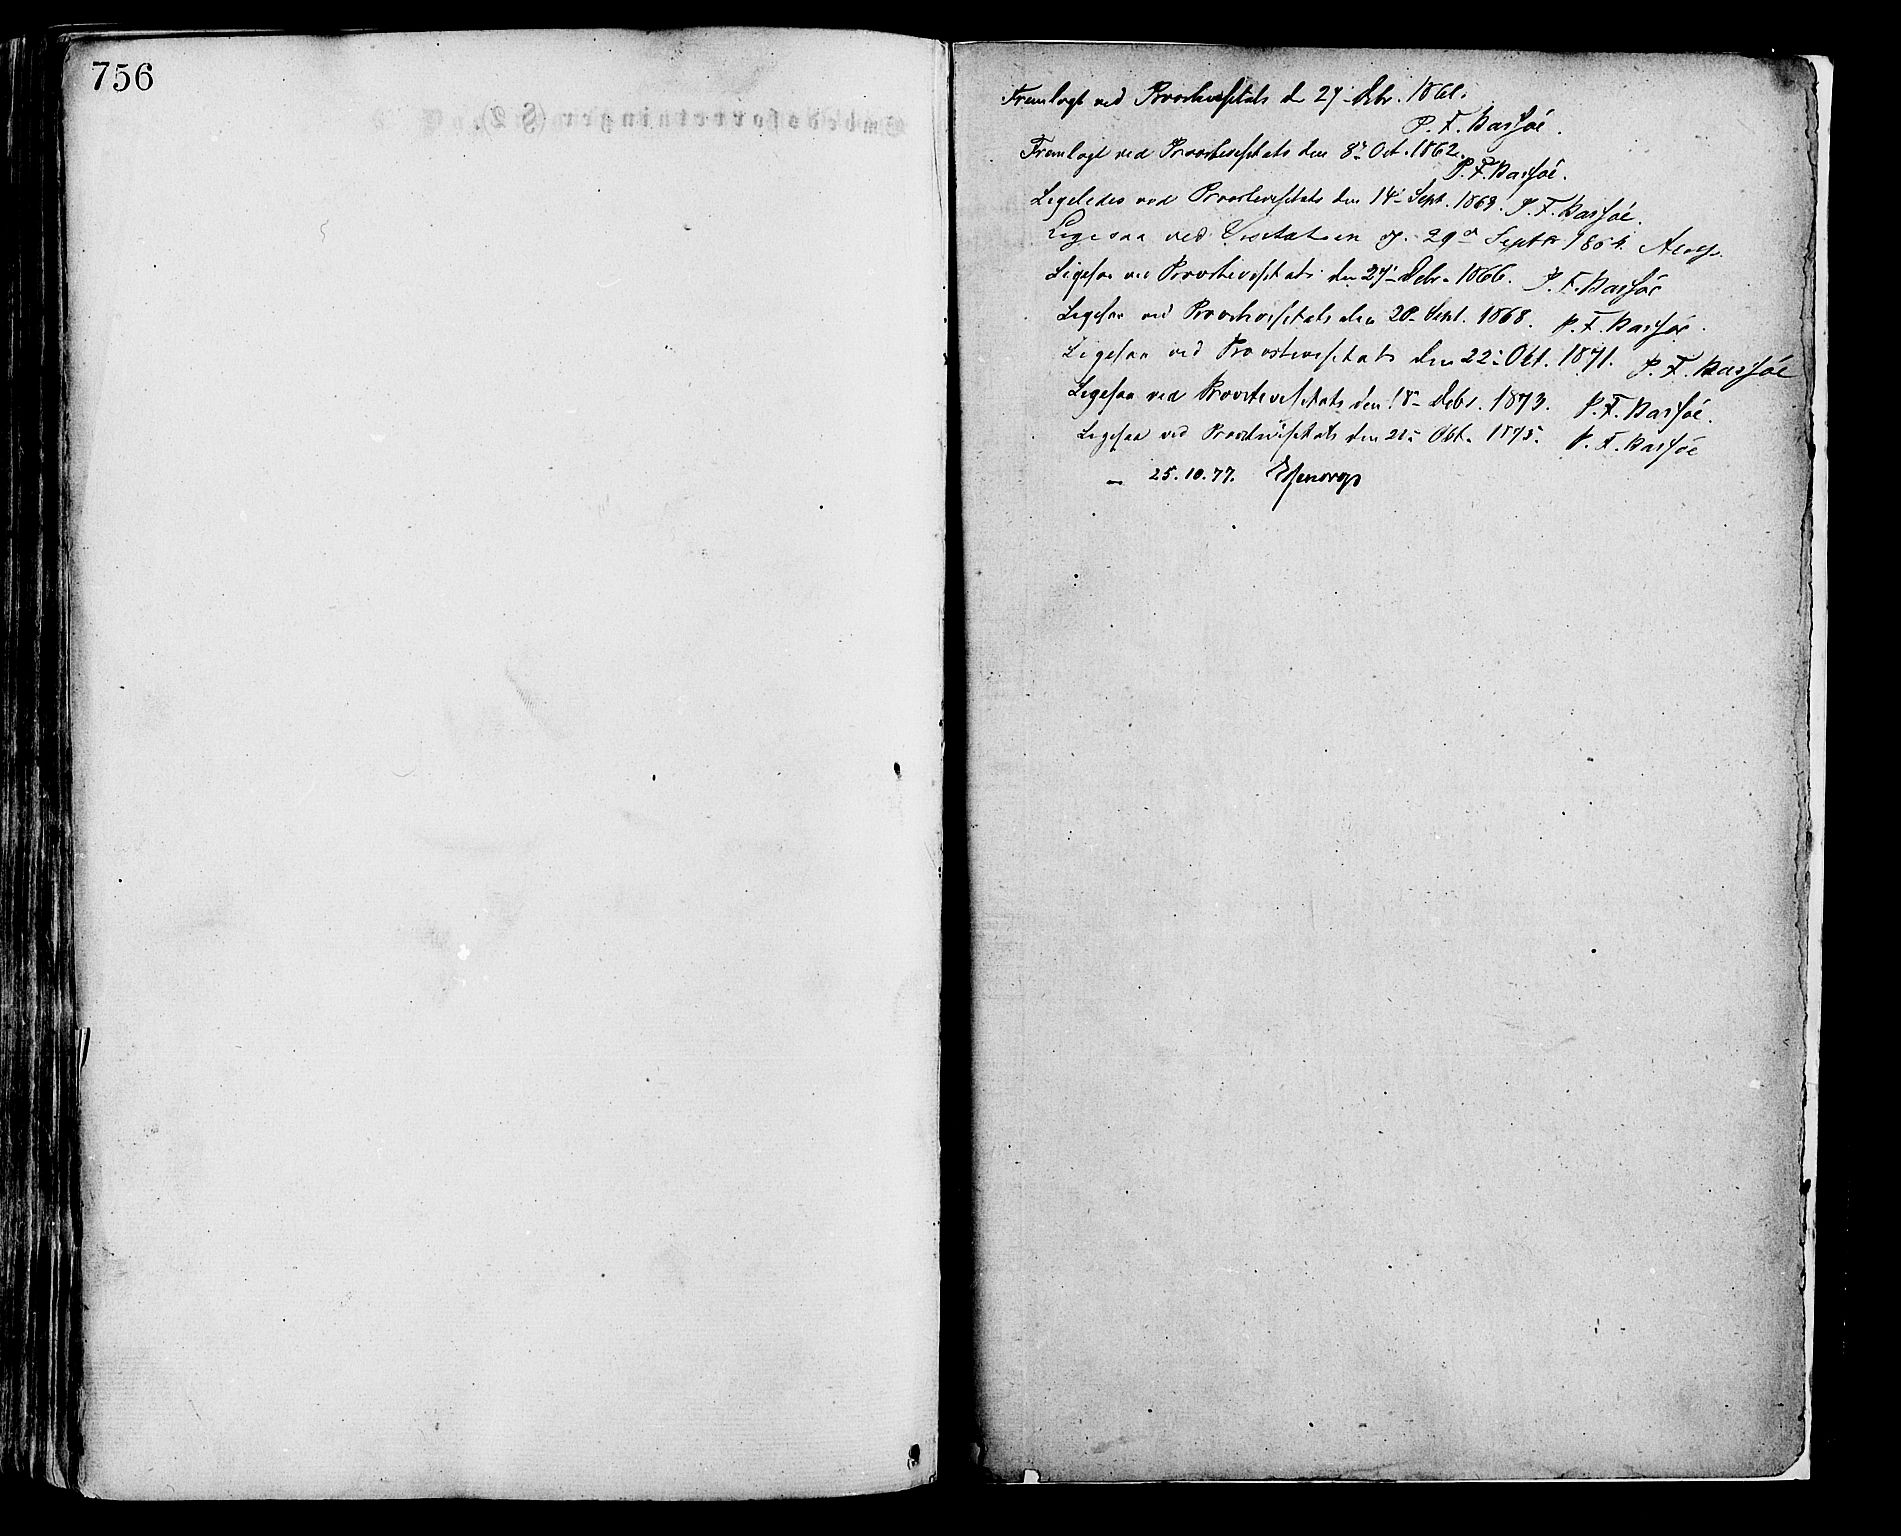 756
Fremlagt ved Provstevisitats d. 27 Sebr. 1861.
P. F. Barføe.
Fremlagt ved Provstevisitats den 8de Oct. 1862.
P. F. Barføe.
Ligeledes ved Provstevisitats den 14 Sept. 1863. P. F. Barføe.
Ligesaa ved Visitatsen d. 29de Septbr 1864.
Ligesaa ved Provstevisitats den 27 Sebr. 1866. P. F. Barføe
Ligesaa ved Provstevisitats den 20 Sept. 1868. P. F. Barføe.
Ligesaa ved Provstevisitats den 22 Okt. 1871. P. F. Barføe
Ligesaa ved Provstevisitats den 18 Sebr. 1873. P. F. Barføe.
Ligesaa ved Provstevisitats den 21 Okt. 1875. P. F. Barføe
— 25.10.77.